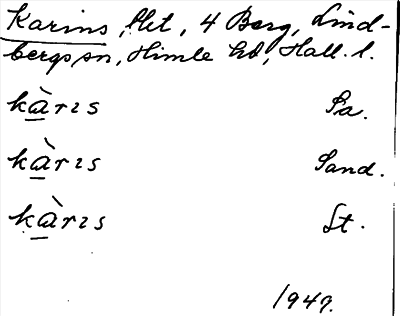 Karins, Het, 4 Berg, Lind-
bergs sn, Himle hd, Hall. l.
kàrɪs Pa.
kàrɪs Sand.
kàrɪs St.
1947.